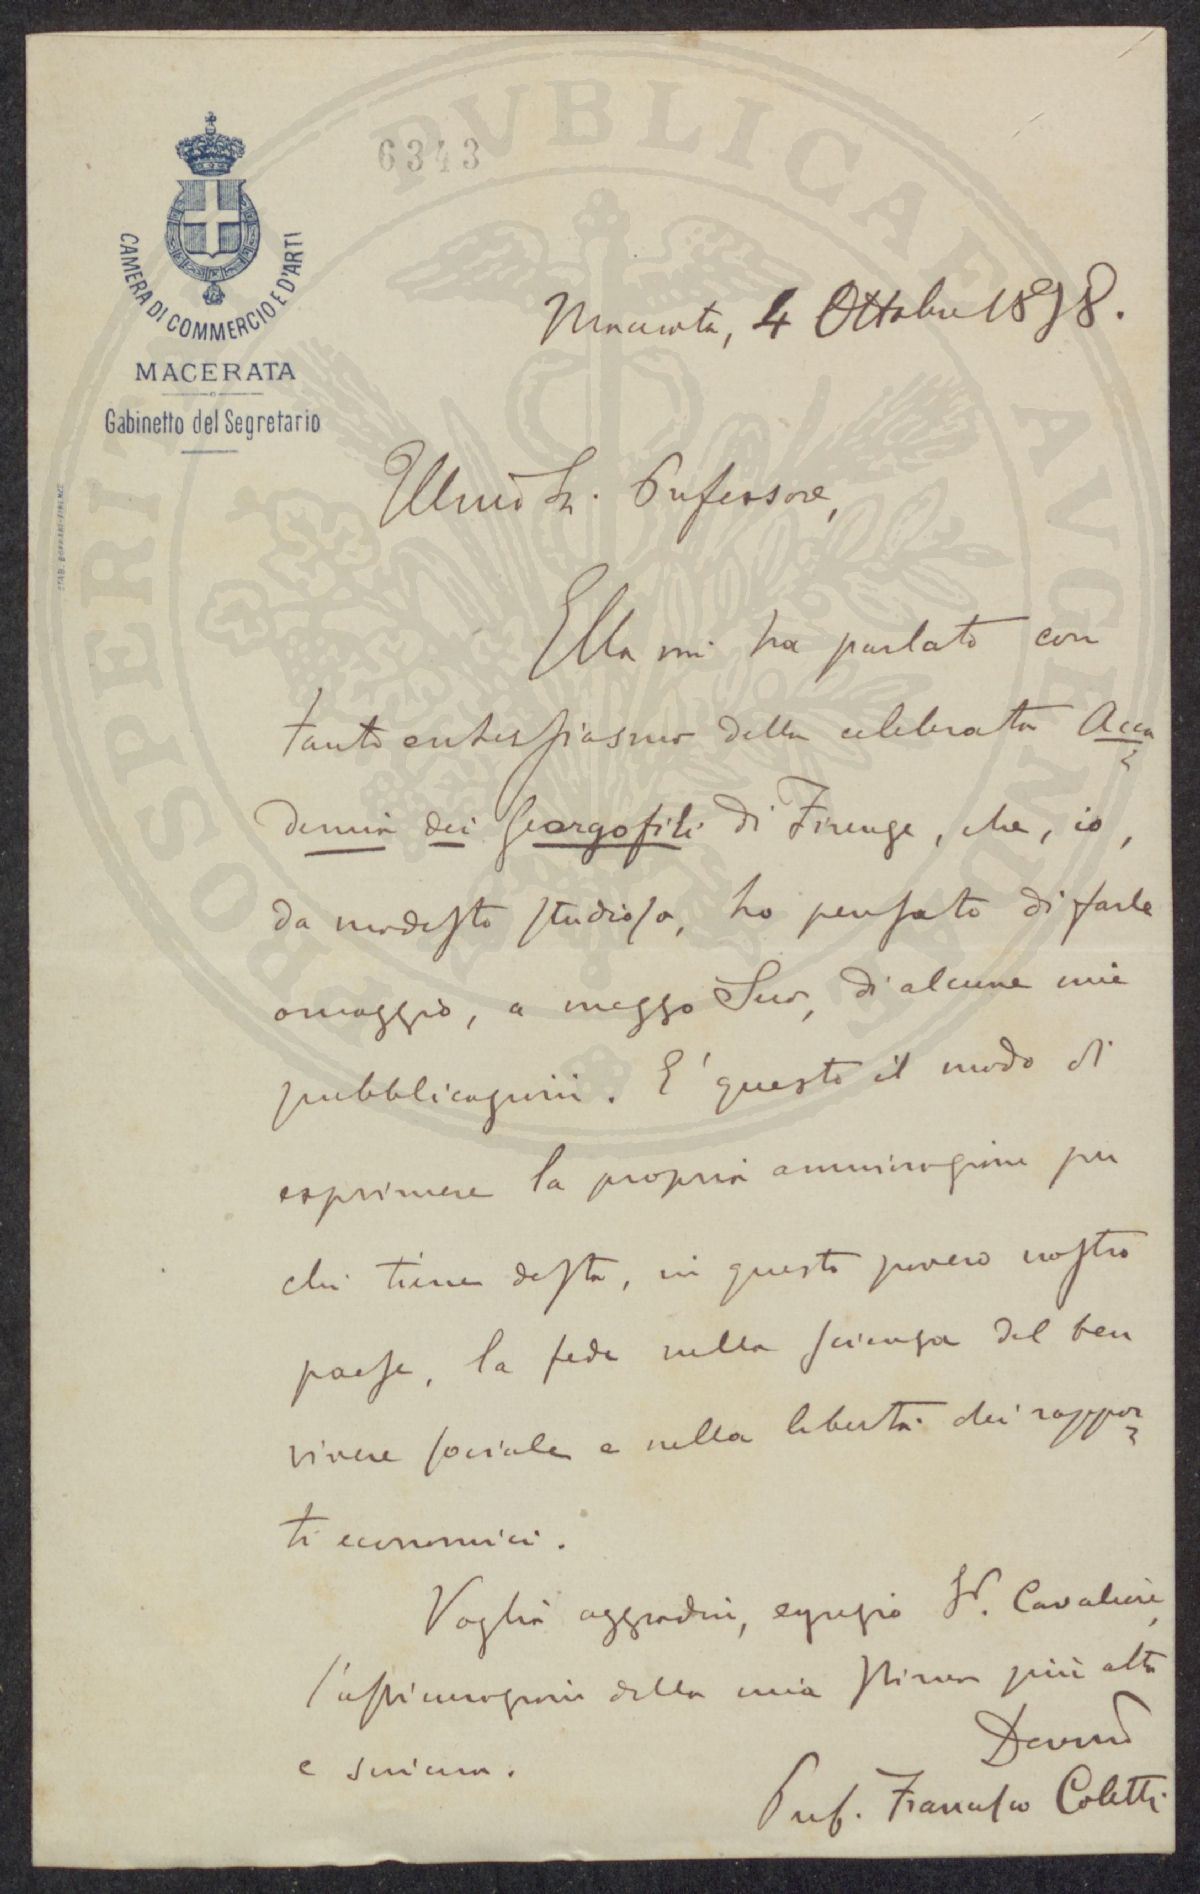 6343
CAMERA DI COMMERCIO E D'ARTI
MACERATA
Gabinetto del Segretario
STAB. FIRENZE
PROSPERITATI PVBLICAE AVGENDAE
Macerata, 4 Ottobre 1898.
Illmo Sr. Professore,
Ella mi ha parlato con
tanto entusiasmo della celebrata Acca
demia dei Georgofili di Firenze, che, io,
da modesto studioso, ho pensato di farle
omaggio, a mezzo Suo, di alcune mie
pubblicazioni. E' questo il modo di
esprimere la propria ammirazione per
chi tiene desta, in questo povero nostro
paese, la fede nella scienza del ben
vivere sociale e nella libertà dei rappor
ti economici.
Voglia aggradire, egregio Sr. Cavaliere,
l'assicurazione della mia stima più alta
e sincera.
Devmo
Prof. Francesco Coletti